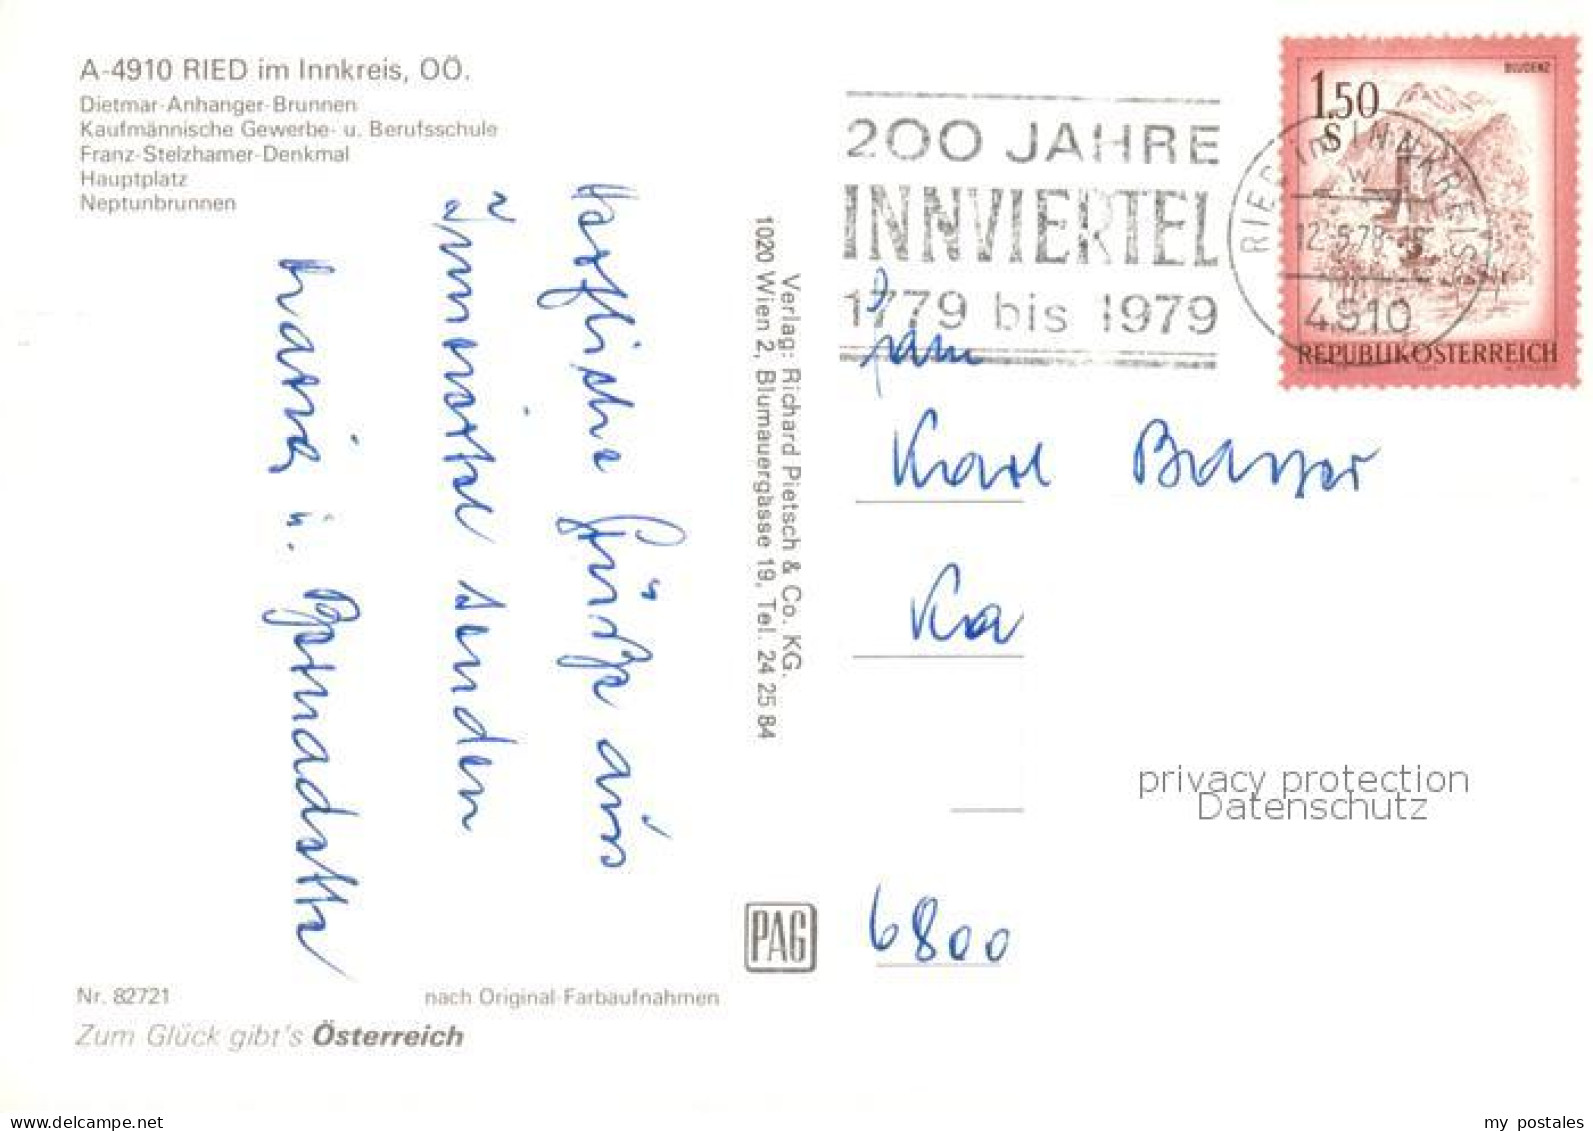 A-4910 RIED im Innkreis, OÖ.
Dietmar-Anhanger-Brunnen
Kaufmännische Gewerbe- u. Berufsschule
Franz-Stelzhamer-Denkmal
Hauptplatz
Neptunbrunnen
Herzliche Grüße aus
senden
Maria u. Bernadette
Nr. 82721
nach Original-Farbaufnahmen
Zum Glück gibt's Österreich
Verlag: Richard Pietsch & Co. KG.
1020 Wien 2, Blumauergasse 19, Tel. 24 25 84
PAG
200 JAHRE
INNVIERTEL
1779 bis 1979
RIED im INNKREIS
4910
BLUDENZ
1.50
S
REPUBLIK ÖSTERREICH
Fam
Karl
Ka
6800
privacy protection
Datenschutz
delcampe.net
my_postales